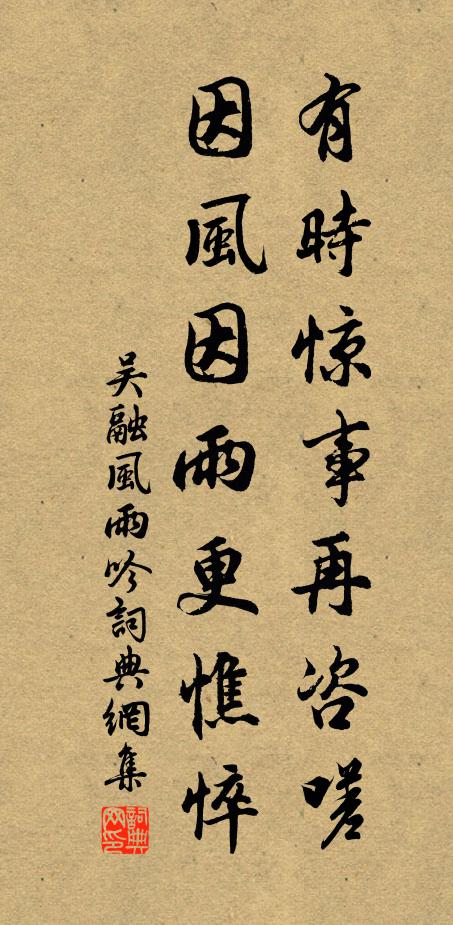 有時惊事再咨嗟
因風因雨更憔悴
吴融風雨吟詞典網集
詞典网印